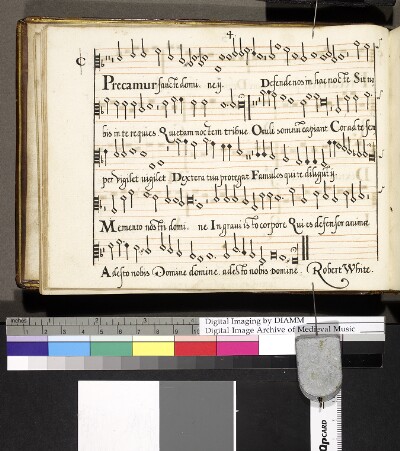 4
Precamur sancte domi. ne ij. Defende nos in hac nocte Sit no
bis in te requies Quietam noctem tribue Oculi somnum capiant Cor ad te sem
per vigilet vigilet Dextera tua protegat Famulos qui te diligunt ij.
Memento nostri domi. ne In gravi isto corpore Qui es defensor animæ
Adesto nobis Domine domine. adesto nobis domine. Robert White.
inches
Digital Imaging by DIAMM
Digital Image Archive of Medieval Music
QPCARD